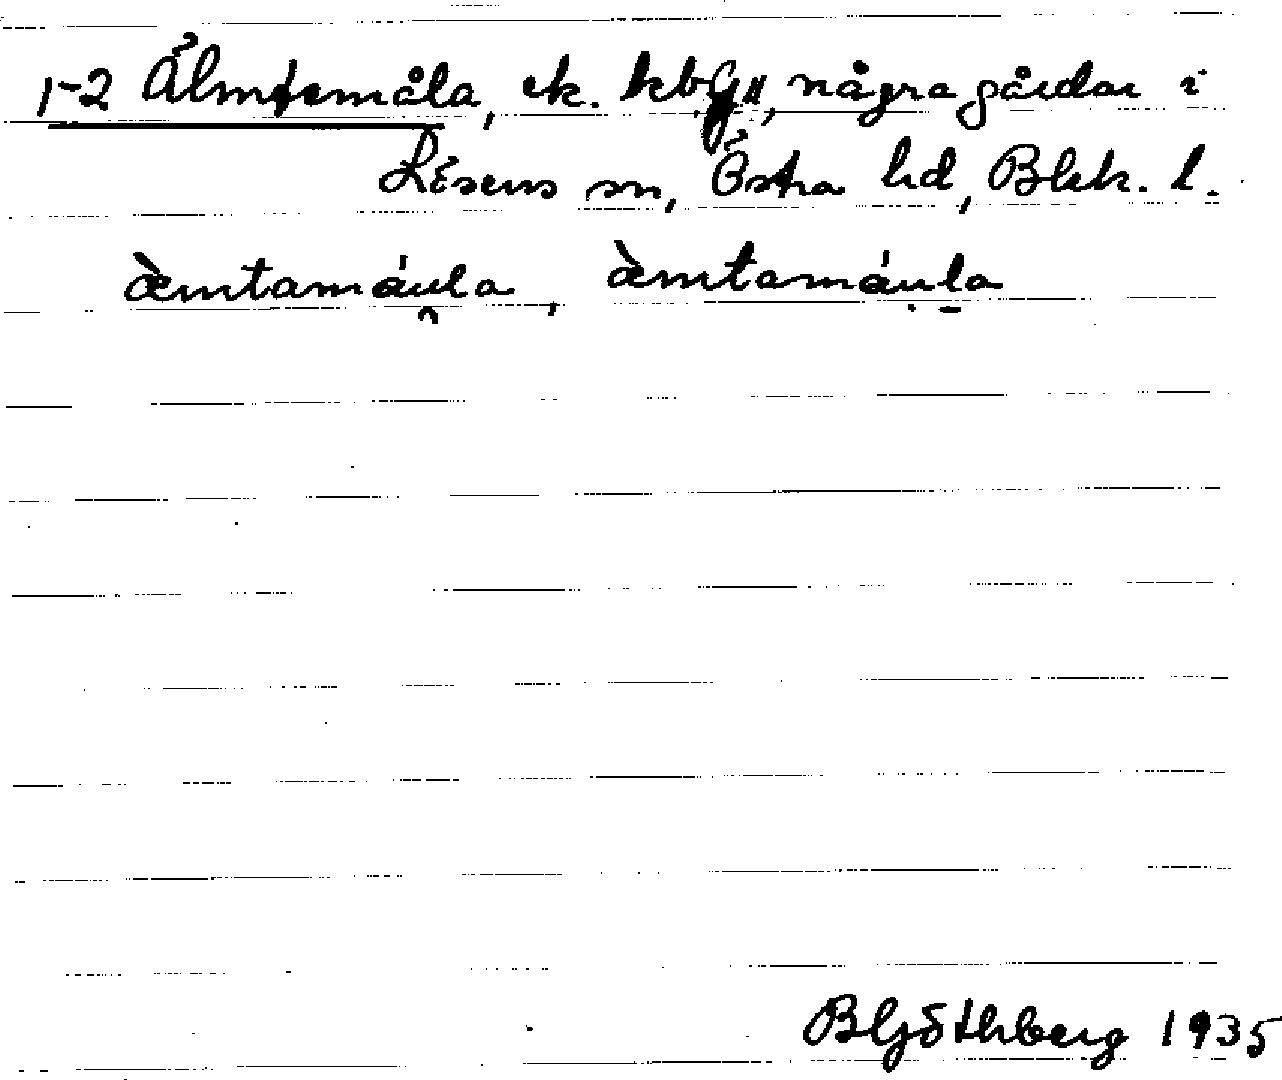 1-2 Älmtemåla, ek. kbg, några gårdar i
Lösens sn, Östra hd, Blek. l.
æ̀mtamáu̯la, æ̀mtamáu̯la
B Göthberg 1935